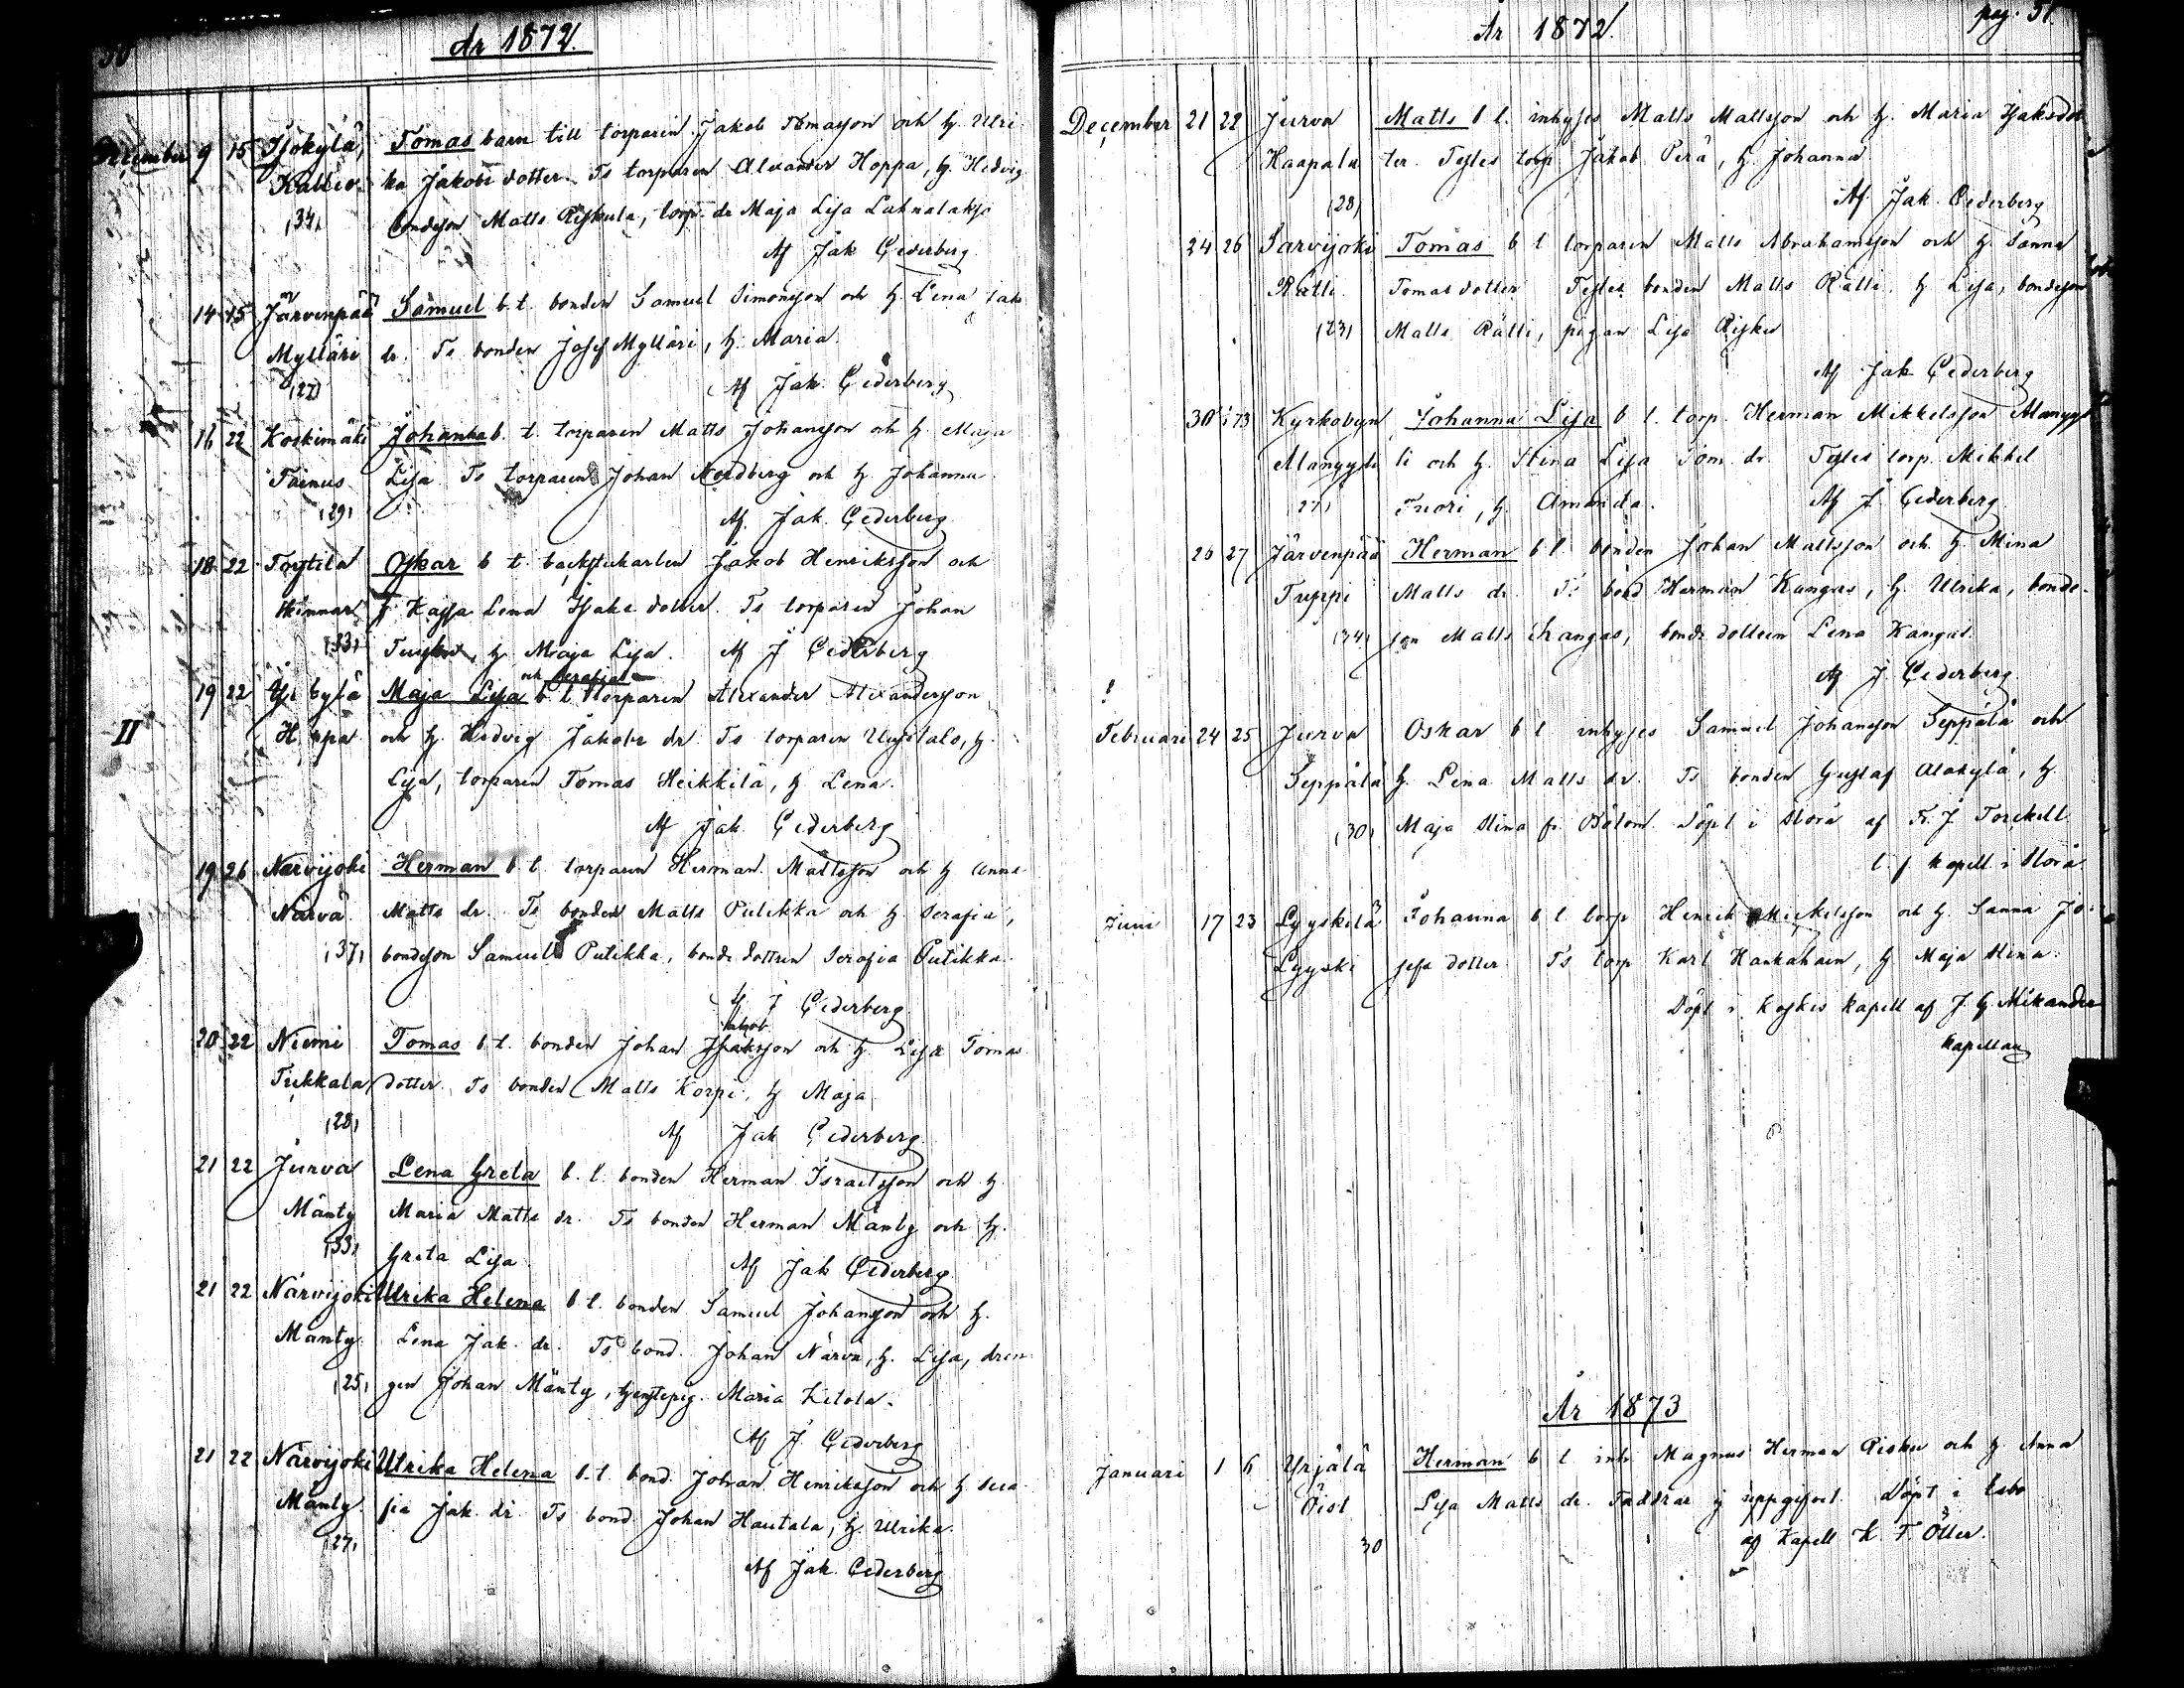 År 1872.
December 9 15 Tomas barn till torparen Jakob Tomasson och h. Ulri
Kallio ka Jakobs dotter. Ts torparen Alexander Hoppa, h. Hedvig
(34) bondeson Matts Risikula, torp. dr Maja Lisa
Af Jak Cederberg
14 15 Järvenpää Samuel b. t. bonden Samuel Simonsson och h. Lena Jak
Mylläri dr. Ts bonden Josef Mylläri, h. Maria.
(27) Af Jak. Cederberg
16 22 Koskimäki Johanna b. t. torparen Matts Johansson och h. Maja
Tainus Lisa Ts torparen Johan Nordberg och h. Johanna
(29) Af. Jak. Cederberg
18 22 Oskar b t. backstukarlen Jakob Henriksson och
h Kajsa Lena Isaks dotter. Ts torparen Johan
(33) h Maja Lisa. Af J Cederberg
och Serafia
19 22 Maja Lisa b t torparen Alexander Alexandersson
II Hoppa och h. Hedvig Jakobs dr. Ts torparen h.
Lisa, torparen Tomas Heikkilä, h Lena.
Af Jak Cederberg
19 26 Närvijoki Herman b. t. torparen Herman Mattsson och h Anna
Närvä Matts dr. Ts bonden Matts Pulikka och h. Serafia,
(37) bondeson Samuel Pulikka, bonde dottren Serafia Pulikka.
Af J Cederberg
Jakob
20 22 Niemi Tomas b t. bonden Johan Isaksson och h. Lisa Tomas
Tukkala dotter. Ts bonden Matts Korpi, h Maja
(28) Af Jak Cederberg
21 22 Jurva Lena Greta b. t. bonden Herman Israelsson och h
Mänty Maria Matts dr. Ts bonden Herman Mänty och h.
(33) Greta Lisa Af Jak Cederberg
21 22 Närvijoki Ulrika Helena b t. bonden Samuel Johansson och h.
Mänty Lena Jak. dr. Ts bond. Johan Närvä, h. Lisa, drän
(25) gen Johan Mänty, Maria
Af J Cederberg
21 22 Närvijoki Ulrika Helena b. t. bond. Johan Henriksson och h Sera
Mänty fia Jak. dr. Ts bond Johan Hautala, h. Ulrika.
(27) Af Jak Cederberg
År 1872. pag. 51
December 21 22 Jurva Matts b t. inhyses Matts Mattsson och h. Maria Isaksdot
Haapala ter. Testes torp Jakob Perä, h. Johanna
(28) Af Jak Cederberg
24 26 Sarvijoki Tomas b t torparen Matts Abrahamsson och h. Sanna
Rätti Tomas dotter Testes bonden Matts Rätti h Lisa, bondeson
(23) Matts Rätti, pigan Lisa Risku
Af Jak Cederberg
30 73 Kyrkobyn Johanna Lisa b t. torp. Herman Mikkelsson Manyys
Manyysti ti och h. Stina Lisa Tom. dr. Testes torp. Mikkel
27) Tuori, h. Amanda. Af J Cederberg
26 27 Järvenpää Herman b t. bonden Johan Mattsson och h. Mina
Tuppi Matts dr. Ts bond Herman Kangas, h. Ulrika, bonde-
(34) son Matts Kangas, bonde dottren Lena Kangas
Af J Cederberg
!
Februari 24 25 Jurva Oskar b t inhyses Samuel Johansson Seppälä och
Seppälä h. Lena Matts dr. Ts bonden Gustaf Alakylä, h.
(30) Maja Stina fr. Bötom. Döpt i Storå af K. J. Torckell
t. f kapell. i Storå
Juni 17 23 Lyyskilä Johanna b t torp Henrik Mickelsson och h. Sanna Jo
Lyyski sefs dotter Ts torp Karl Hankahain, h Maja Stina.
Döpt i Koskis kapell af J. G. Mikander
kapellan
År 1873
Januari 1 6 Yrjälä Herman b t. inh Magnus Herman Risku och h Anna
Öist Lisa Matts dr. Faddrar ej uppgifvet. Döpt i Esbo
30 af Kapell K. F. Öller.